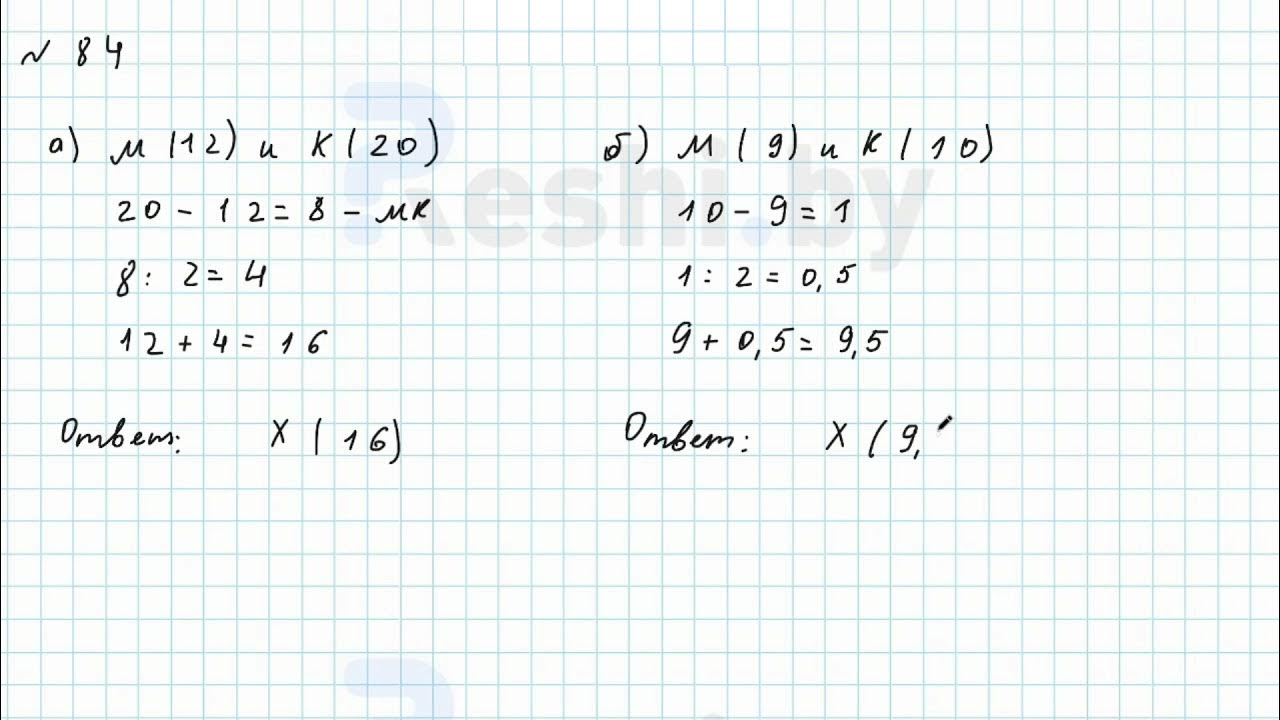 № 84
а) М (12) и К (20)
20 - 12 = 8 - МК
8 : 2 = 4
12 + 4 = 16
Ответ: X (16)
б) М (9) и К (10)
10 - 9 = 1
1 : 2 = 0,5
9 + 0,5 = 9,5
Ответ: X (9,
Reshi.by